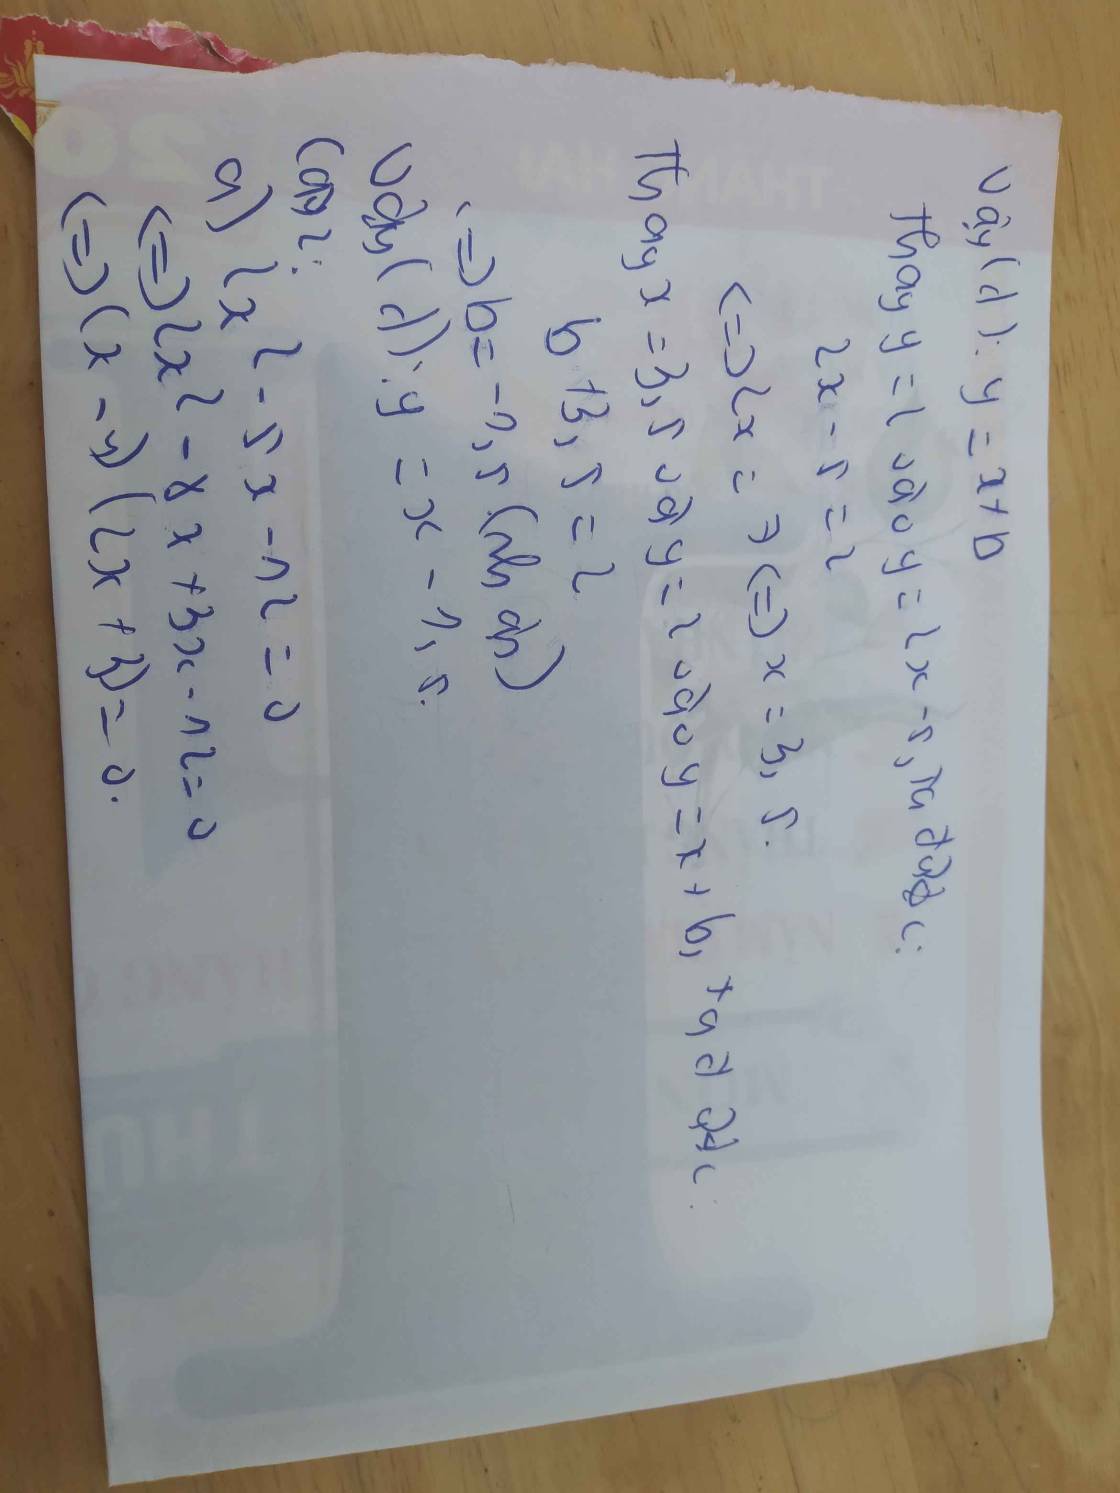 Vậy (d): y = x + b
Thay y = 2 vào y = 2x - 5, ta được:
2x - 5 = 2
<=> 2x = 7 <=> x = 3,5.
Thay x = 3,5 và y = 2 vào y = x + b, ta được:
b + 3,5 = 2
<=> b = -1,5 (nhận)
Vậy (d): y = x - 1,5.
Câu 2:
a) 2x² - 5x - 12 = 0
<=> 2x² - 8x + 3x - 12 = 0
<=> (x - 4)(2x + 3) = 0.